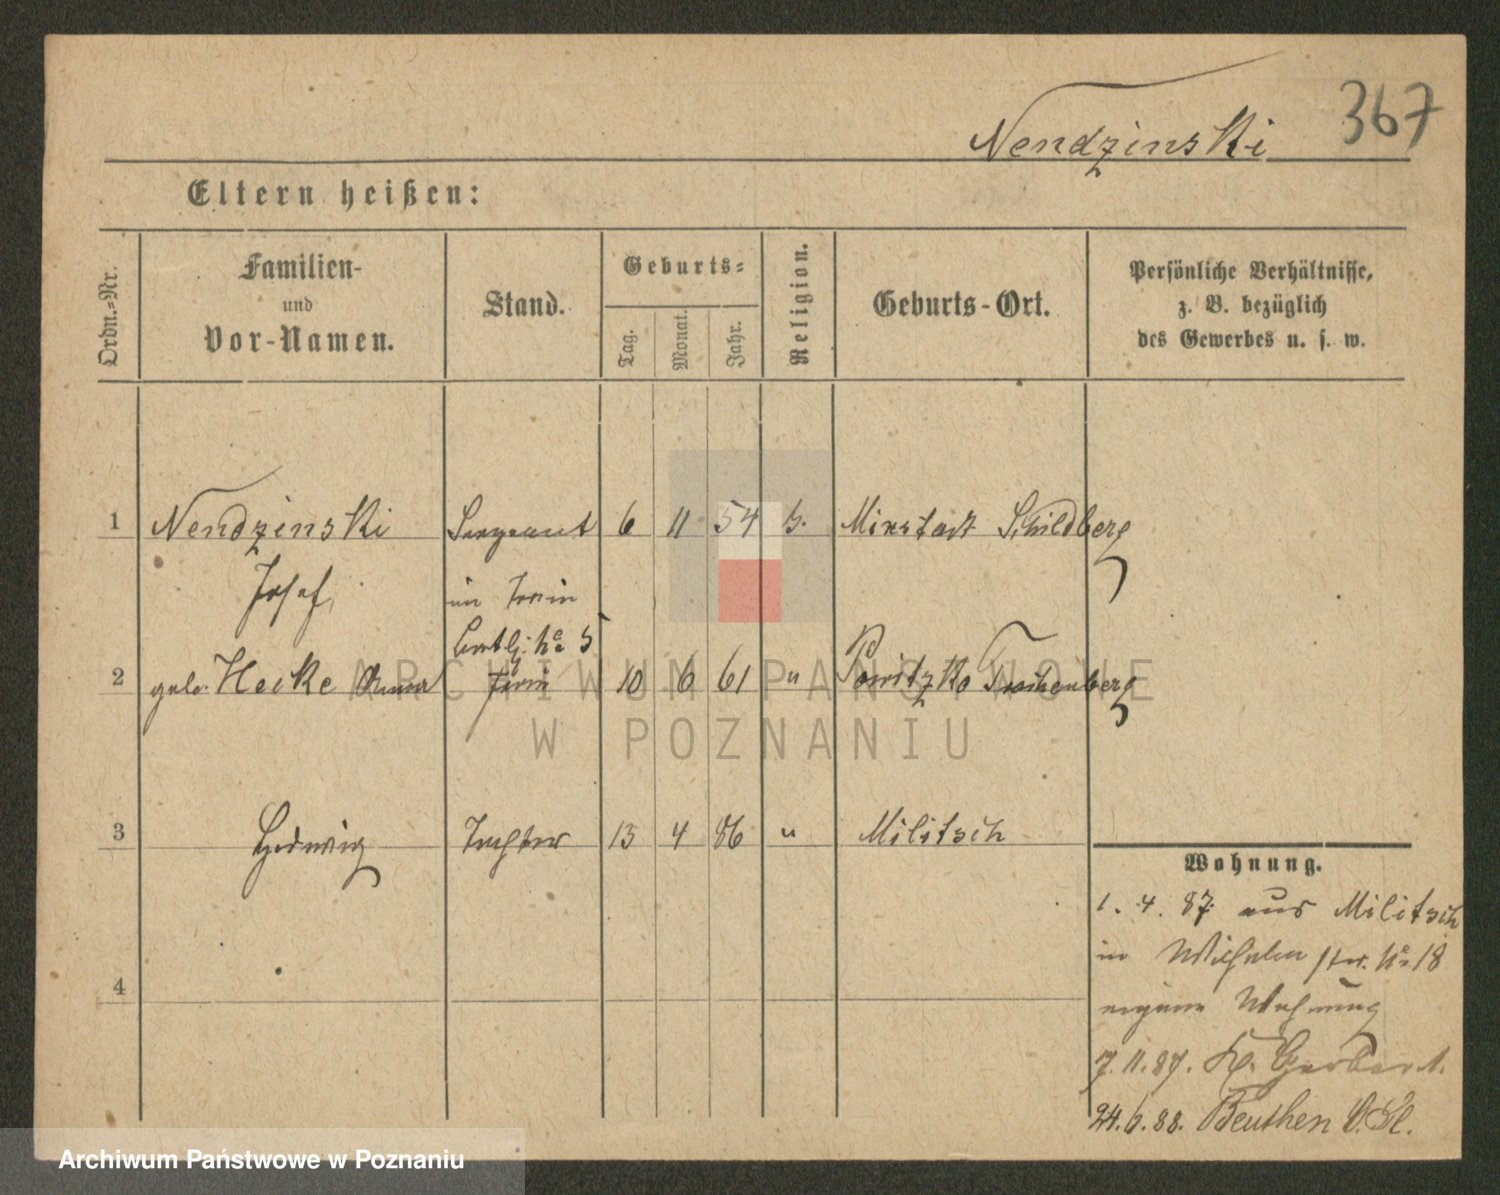 Nendzinski 367
Eltern heißen:
Ordn.-Nr.
Familien-
und
Vor-Namen.
Stand.
Geburts-
Tag.
Monat.
Jahr.
Religion.
Geburts-Ort.
Persönliche Verhältnisse,
z. B. bezüglich
des Gewerbes u. s. w.
1 Nendzinski Sergeant 6 11 54 Schildberg
Josef, im Train
2 geb. Heike Anna 10 6 61 " Powitzko Trachenberg
3 Hedwig Tochter 13 4 86 " Militsch
Wohnung.
1. 4. 87 aus Militsch
in Wilhelm str. No 18
eigene Wohnung
7. 11. 87. Kl. Gerberst.
24. 6. 88. Beuthen O. Sl.
4
ARCHIWUM PAŃSTWOWE
W POZNANIU
Archiwum Państwowe w Poznaniu